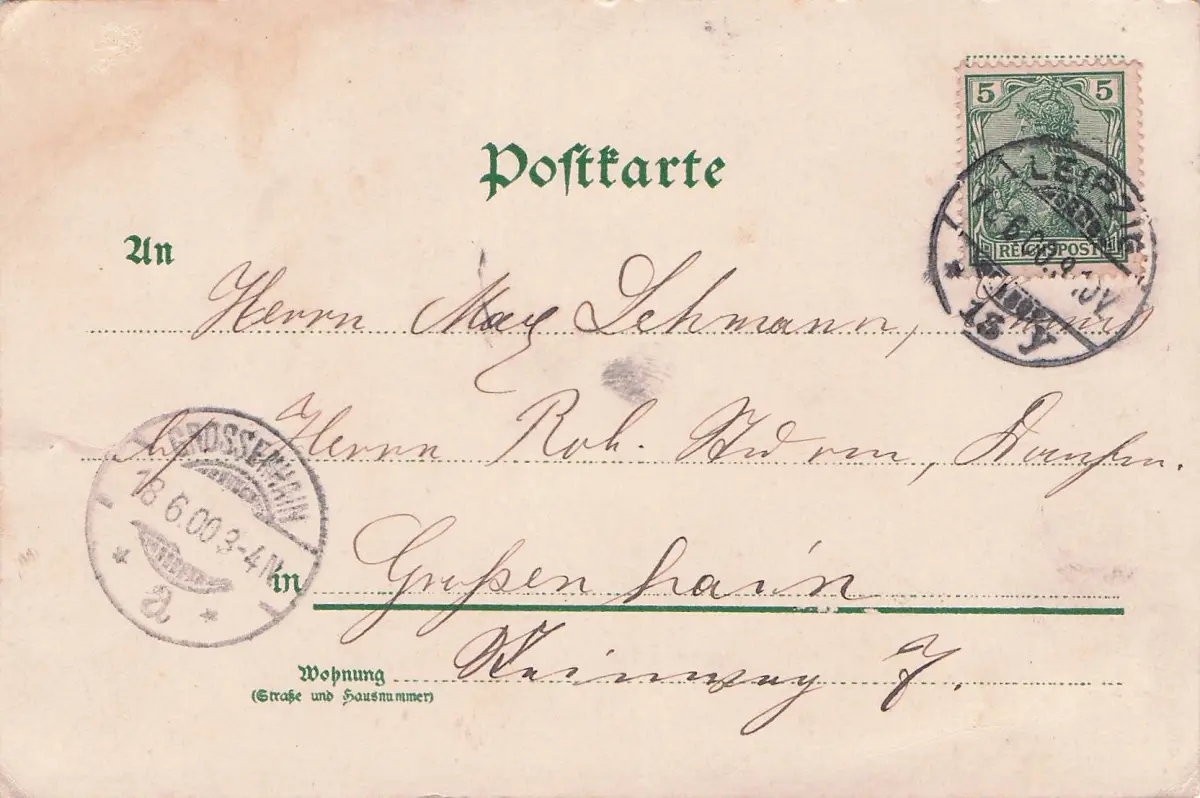 Postkarte
5 5
REICHSPOST
LEIPZIG
13
An
Herrn Max Lehmann,
Herrn Rob.
GROSSENHAIN
18 6.00 3-4N
a.
in Großenhain
Wohnung
(Straße und Hausnummer)
7.